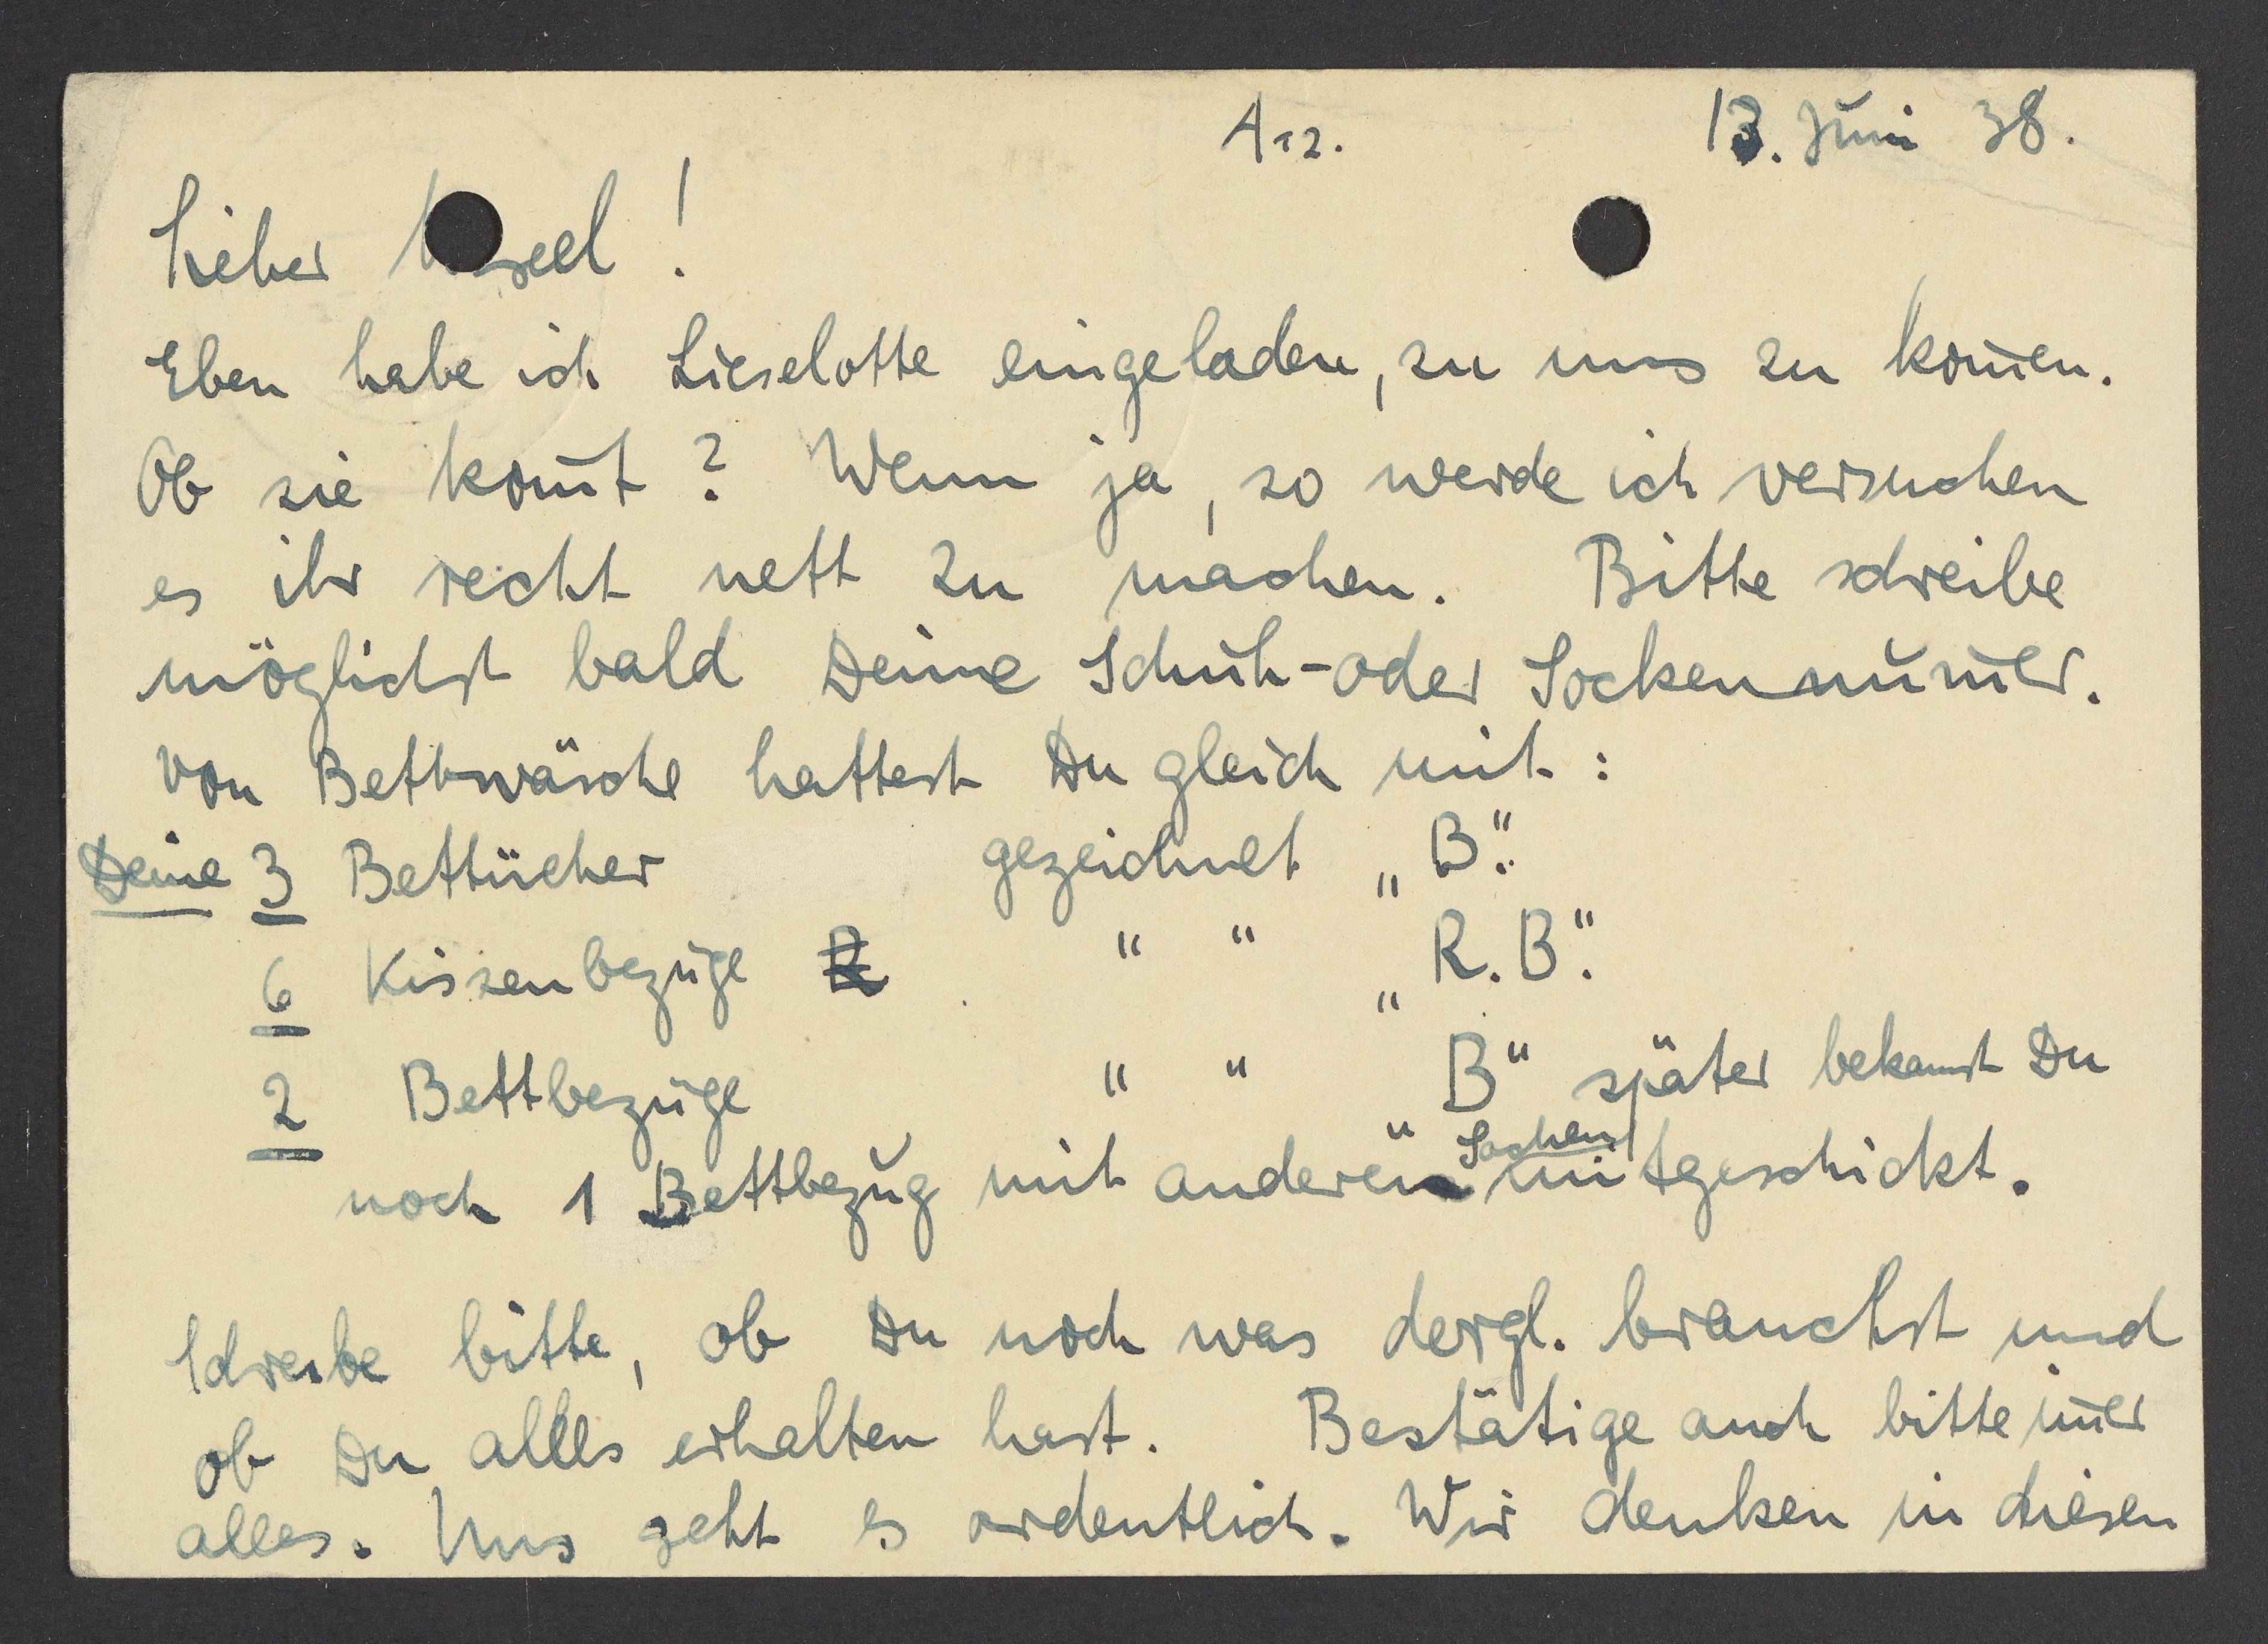 A 12. 13. Juni 38.
Lieber !
Eben habe ich Lieselotte eingeladen, zu uns zu kom̄en.
Ob sie kom̄t? Wenn ja, so werde ich versuchen
es ihr recht nett zu machen. Bitte schreibe
möglichst bald Deine Schuh-oder Sockennum̄er.
Von Bettwäsche hattest Du gleich mit:
Deine 3 Bettücher gezeichnet „B."
6 Kissenbezüge " " „R.B."
2 Bettbezüge " " „B" später bekamst Du
noch 1 Bettbezug mit anderen Sachen mitgeschickt.
Schreibe bitte, ob Du noch was dergl. brauchst und
ob Du alles erhalten hast. Bestätige auch bitte im̄er
alles. Uns geht es ordentlich. Wir denken in diesen